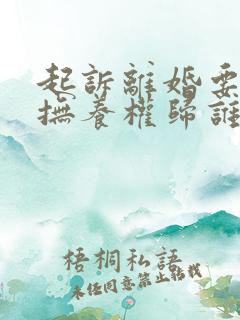 起訴離婚要
撫養權歸誰
梧桐私語
未經同意禁止轉載